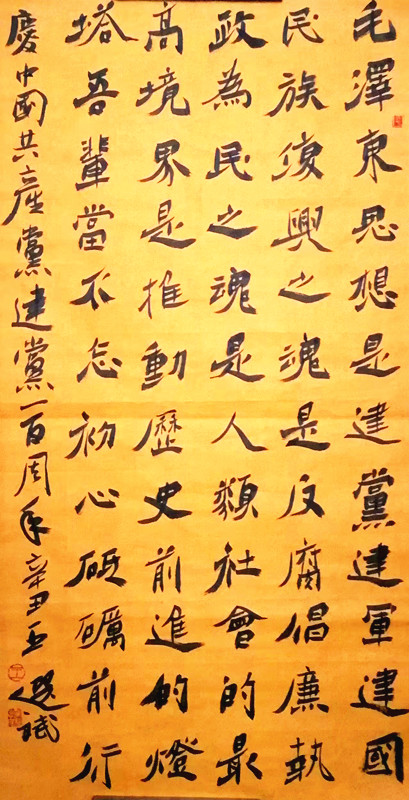 毛澤東思想是建黨建軍建國
民族復興之魂是反腐倡廉執
政為民之魂是人類社會的最
高境界是推動歷史前進的燈
塔吾輩當不忘初心砥礪前行
慶中國共產黨建黨一百周年辛丑